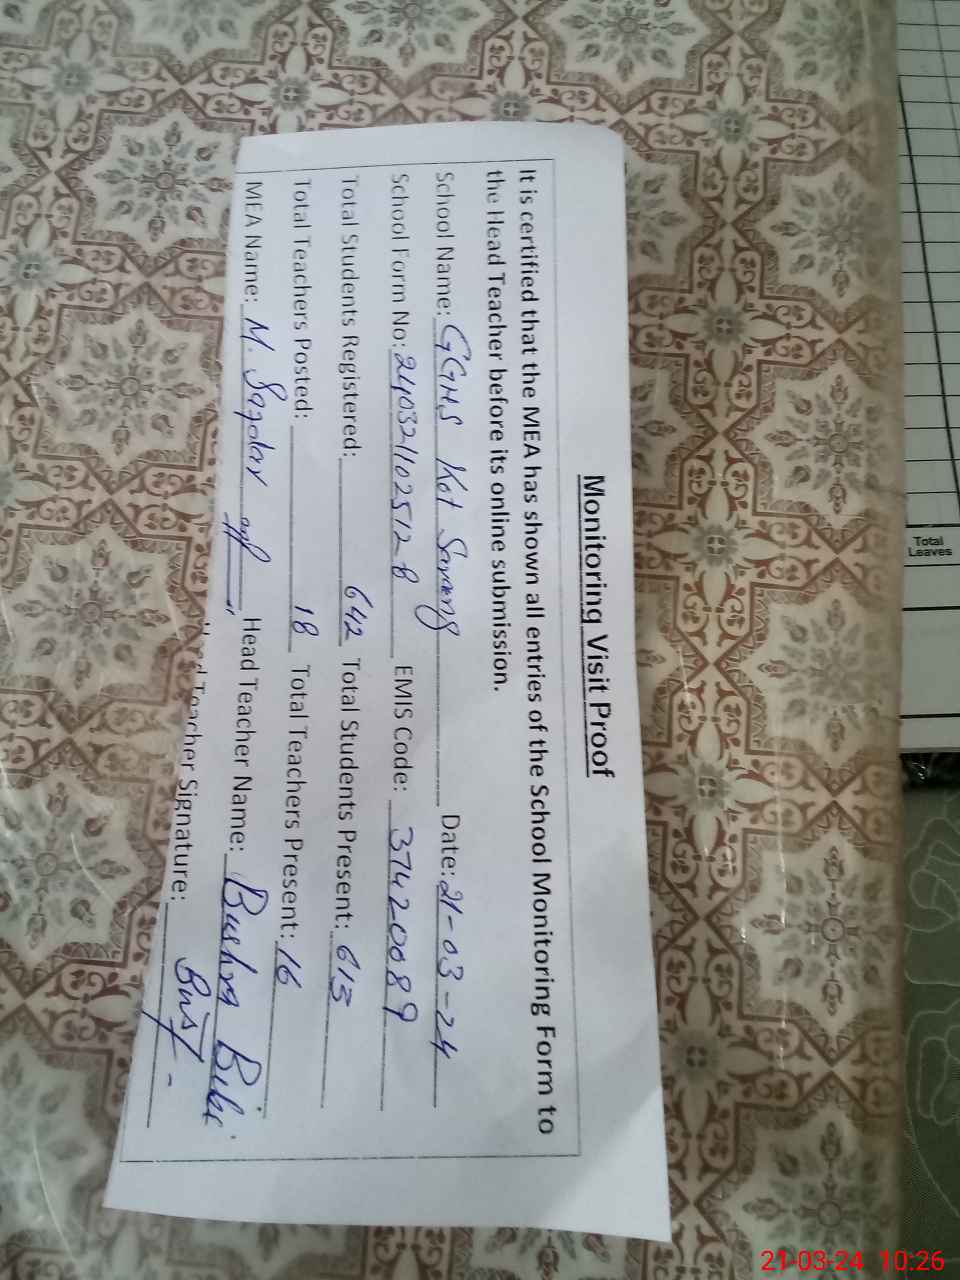 Monitoring Visit Proof
It is certified that the MEA has shown all entries of the School Monitoring Form to
the Head Teacher before its online submission.
School Name: GGHS Kot Sarang Date: 21-03-24
School Form No: 2403211025128 EMIS Code: 37420089
Total Students Registered: 642 Total Students Present: 613
Total Teachers Posted: 18 Total Teachers Present: 16
MEA Name: M. Safdar Head Teacher Name: Bushra Bibi
Head Teacher Signature:
Total
Leaves
21-03-24 10:26